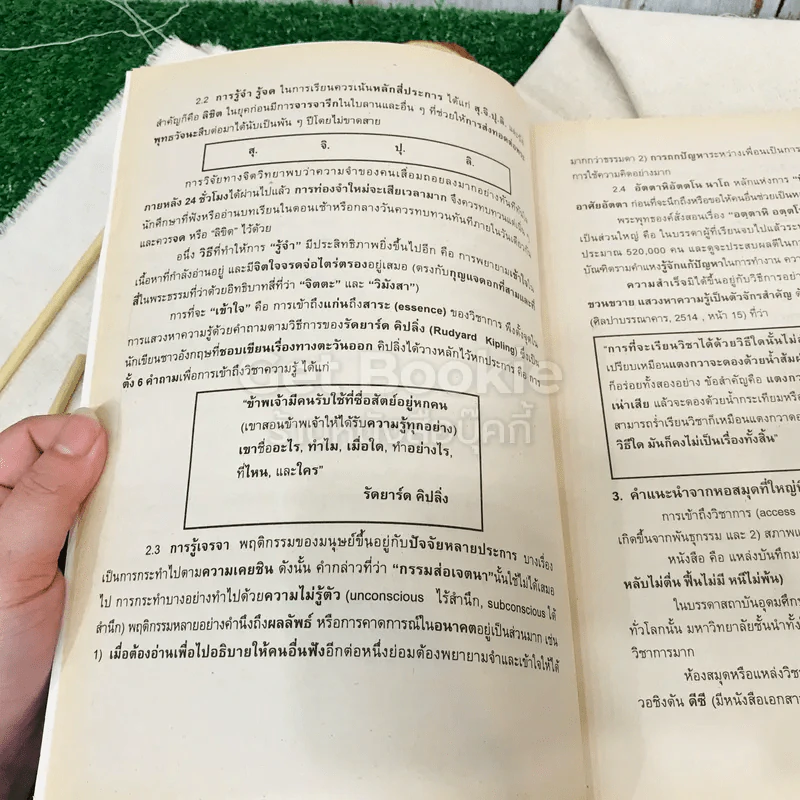 2.2 การรู้จำ รู้จด ในการเรียนควรเน้นหลักสี่ประการ ได้แก่ สุ.จิ.ปุ.ลิ.
สำคัญก็คือ ลิขิต ในยุคก่อนมีการจารจารึกในใบลานและอื่น ๆ ที่ช่วยให้การส่งทอดต่อพระ
พุทธวัจนะสืบต่อมาได้นับเป็นพัน ๆ ปีโดยไม่ขาดสาย
สุ. จิ. ปุ. ลิ.
การวิจัยทางจิตวิทยาพบว่าความจำของคนเสื่อมถอยลงมากอย่างทันทีทันใด
ภายหลัง 24 ชั่วโมงได้ผ่านไปแล้ว การท่องจำใหม่จะเสียเวลามาก จึงควรทบทวนแต่เนิ่น ๆ
นักศึกษาที่ฟังหรืออ่านบทเรียนในตอนเช้าหรือกลางวันควรทบทวนทันทีภายในวันเดียวกัน
และควรจด หรือ "ลิขิต" ไว้ด้วย
อนึ่ง วิธีที่ทำให้การ "รู้จำ" มีประสิทธิภาพยิ่งขึ้นไปอีก คือ การพยายามเข้าใจใน
เนื้อหาที่กำลังอ่านอยู่ และมีจิตใจจรดจ่อไตร่ตรองอยู่เสมอ (ตรงกับกุญแจดอกที่สามและที่
สี่ในพระธรรมที่ว่าด้วยอิทธิบาทสี่ที่ว่า "จิตตะ" และ "วิมังสา")
การที่จะ "เข้าใจ" คือ การเข้าถึงแก่นถึงสาระ (essence) ของวิชาการ พึงตั้งจุดใน
การแสวงหาความรู้ด้วยคำถามตามวิธีการของรัดยาร์ด คิปลิ่ง (Rudyard Kipling) ซึ่งเป็น
นักเขียนชาวอังกฤษที่ชอบเขียนเรื่องทางตะวันออก คิปลิ่งได้วางหลักไว้หกประการ คือ การ
ตั้ง 6 คำถามเพื่อการเข้าถึงวิชาความรู้ ได้แก่
"ข้าพเจ้ามีคนรับใช้ที่ซื่อสัตย์อยู่หกคน
(เขาสอนข้าพเจ้าให้ได้รับความรู้ทุกอย่าง)
เขาชื่ออะไร, ทำไม, เมื่อใด, ทำอย่างไร,
ที่ไหน, และใคร"
รัดยาร์ด คิปลิ่ง
2.3 การรู้เจรจา พฤติกรรมของมนุษย์ขึ้นอยู่กับปัจจัยหลายประการ บางเรื่อง
เป็นการกระทำไปตามความเคยชิน ดังนั้น คำกล่าวที่ว่า "กรรมส่อเจตนา"นั้นใช้ไม่ได้เสมอ
ไป การกระทำบางอย่างทำไปด้วยความไม่รู้ตัว (unconscious ไร้สำนึก, subconscious ใต้
สำนึก) พฤติกรรมหลายอย่างคำนึงถึงผลลัพธ์ หรือการคาดการณ์ในอนาคตอยู่เป็นส่วนมาก เช่น
1) เมื่อต้องอ่านเพื่อไปอธิบายให้คนอื่นฟังอีกต่อหนึ่งย่อมต้องพยายามจำและเข้าใจให้ได้
มากกว่าธรรมดา 2) การถกปัญหาระหว่างเพื่อนเป็นการ
การใช้ความคิดอย่างมาก
2.4 อัตตาหิอัตตโน นาโถ หลักแห่งการ
อาศัยอัตตา ก่อนที่จะนึกถึงหรือขอให้คนอื่นช่วยเป็นหน
พระพุทธองค์สั่งสอนเรื่อง "อตฺตาหิ อตฺตโน
เป็นส่วนใหญ่ คือ ในบรรดาผู้ที่เรียนจบไปแล้วระ
ประมาณ 520,000 คน และดูจะประสบผลดีในกา
บัณฑิตรามคำแหงรู้จักแก้ปัญหาในการทำงาน ความ
ความสำเร็จมิได้ขึ้นอยู่กับวิธีการอย่า
ขวนขวาย แสวงหาความรู้เป็นตัวจักรสำคัญ ดั
(ศิลปาบรรณาคาร, 2514 , หน้า 15) ที่ว่า
"การที่จะเรียนวิชาได้ด้วยวิธีใดนั้นไม่ส
เปรียบเหมือนแตงกวาจะดองด้วยน้ำส้มห
ก็อร่อยทั้งสองอย่าง ข้อสำคัญคือ แตงก
เน่าเสีย แล้วจะดองด้วยน้ำกระเทียมหรือ
สามารถร่ำเรียนวิชาก็เหมือนแตงกวาดอ
วิธีใด มันก็คงไม่เป็นเรื่องทั้งสิ้น"
3. คำแนะนำจากหอสมุดที่ใหญ่ที่
การเข้าถึงวิชาการ (access
เกิดขึ้นจากพันธุกรรม และ 2) สภาพแ
หนังสือ คือ แหล่งบันทึกม
หลับไม่ตื่น ฟื้นไม่มี หนีไม่พ้น)
ในบรรดาสถาบันอุดมศึก
ทั่วโลกนั้น มหาวิทยาลัยชั้นนำทั้ง
วิชาการมาก
ห้องสมุดหรือแหล่งวิชา
วอชิงตัน ดีซี (มีหนังสือเอกสา
Get Bookie
ร้านหนังสือบุ๊คกี้